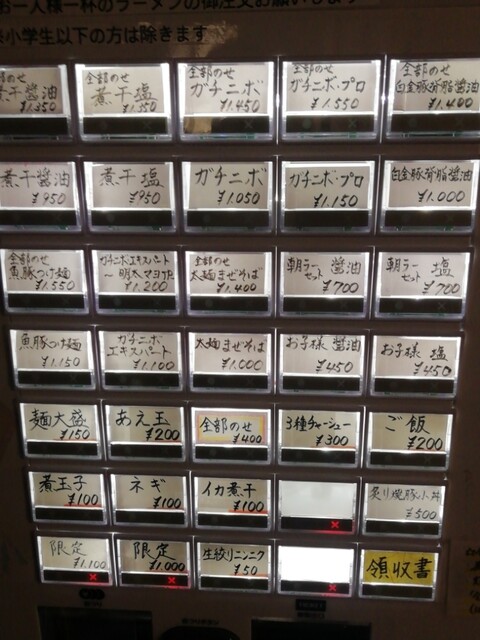 お一人様一杯のラーメンの御注文お願いします
※小学生以下の方は除きます
全部のせ
煮干醤油
¥1.350
全部のせ
煮干塩
¥1.350
全部のせ
ガチニボ
¥1.450
全部のせ
ガチニボ・プロ
¥1.550
全部のせ
白金豚背脂醤油
¥1.400
煮干醤油
¥950
煮干塩
¥950
ガチニボ
¥1.050
ガチニボ・プロ
¥1.150
白金豚背脂醤油
¥1.000
全部のせ
魚豚つけ麺
¥1.550
ガチニボエキスパート
¥1.200
全部のせ
太麺まぜそば
¥1.400
朝ラー 醤油
セット
¥700
朝ラー 塩
セット
¥700
魚豚つけ麺
¥1.150
ガチニボ
エキスパート
¥1.100
太麺まぜそば
¥1.000
お子様 醤油
¥450
お子様 塩
¥450
麺大盛
¥150
あえ玉
¥200
全部のせ
¥400
3種チャーシュー
¥300
ご飯
¥200
煮玉子
¥100
ネギ
¥100
イカ煮干
¥100
炙り焼豚小丼
¥500
限定
¥1.100
限定
¥1.000
生絞りニンニク
¥50
領収書